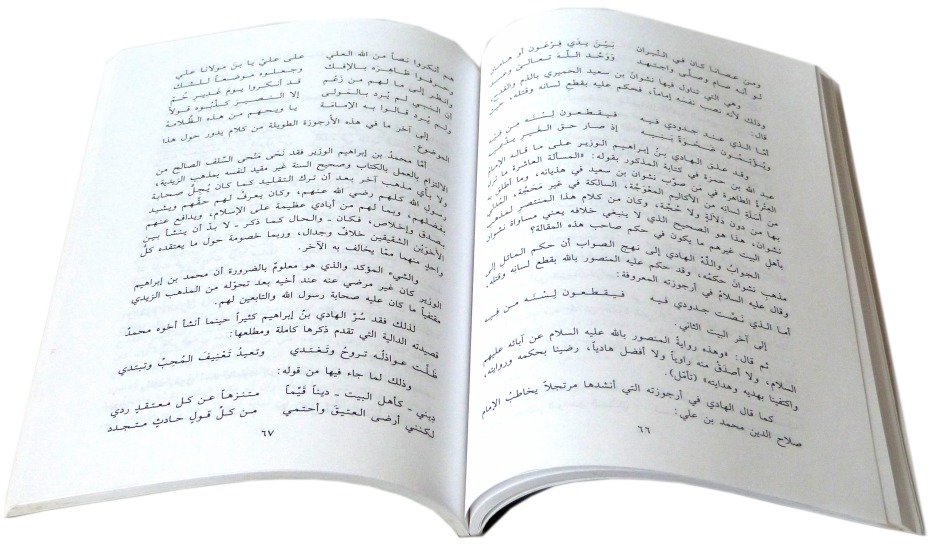 ومن عصانا كان في النيران    بَيْنَ يدَي فِرْعَون أو هامان
لو أنه صام وصلّى واجتهد    وَوَحَّد اللَّهَ تعالى وعبد
وهي التي تناول فيها نشوان بن سعيد الحميري بالذم والقدح،
وذلك لأنه نصب نفسه إماماً، فحكم عليه بقطع لسانه وقتله، حيث
قال:
أمّا الذي عند جدودي فيه    فيقطعون لِسْنَه من فيه
ويُؤْتِمُون ضَحْوَةً بنيه    إذ صار حق الغير يدّعيه
وقد علق الهادي بنُ إبراهيم الوزير على ما قاله الإمام
عبد الله بن حمزة في كتابه المذكور بقوله: «المسألة العاشرة ما ترى
العِتْرة الطاهرة في مَن صوّب نشوان بن سعيد في هذيانه، وما أطلق
من أَسَلَةِ لسانه من الأكاليم المعْوَجّة، السالكة في غير مَحَجّة، المُعلِن
بها من دون دلالةٍ ولا حُجّة، وكان من كلام هذا المنتصر لمذهب
نشوان، هذا هو الصحيح الذي لا ينبغي خلافه يعني مساواة نشوان
بأهل البيت غيرهم ما يكون في حكم صاحب هذه المقالة؟
الجوابُ واللَّهُ الهادي إلى نهج الصواب أن حكم المائل إلى
مذهب نشوانَ حكمُه، وقد حكم عليه المنصور بالله بقطع لسانه وقتله،
وقال عليه السلامُ في أرجوزته المعروفة:
أما الذي نَصَّت جدودي فيه    فيقطعون لِسْنَه من فيه
إلى آخر البيت الثاني.
ثم قال: «وهذه روايةُ المنصور بالله عليه السلام عن آبائه عليهم
السلام، ولا أصدَقُ منه راوياً ولا أفضل هادياً، رضينا بحكمه وروايته،
واكتفينا بهديه وهدايته» (تأمّل).
كما قال الهادي في أرجوزته التي أنشدها مرتجلاً يخاطبُ الإمام
صلاح الدين محمد بن علي:
٦٦
هم أنكروا نصاً من الله العلي    على عليّ يا بن مولانا علي
وحرفوا ظاهرَه بالإفك    وجعلوه موضعاً للشك
وانظر إلى ما لهم من زَعْمِ    قد أنكروا يومَ غديرِ خُمِّ
أن النبي لم يُرد بالمَوْلَى    إلا النصيرَ كذَّبُوه قولاً
ولم يُرد قالوا به الإمامة    يا ويحهم من هذه الظُلامة
إلى آخر ما في هذه الأرجوزة الطويلة من كلام يدور حول هذا
الموضوع.
أمّا محمدُ بن إبراهيم الوزير فقد نَحَى مَنْحى السَّلف الصالح من
الالتزام بالعمل بالكتاب وصحيح السنة غير مقيد لنفسه بمذهب الزيدية،
ولا بأي مذهب آخر بعد أن ترك التقليد كما كان يُجلُّ صحابة
رسول الله كلهم رضي الله عنهم، وكان يعرفُ لهم حقَّهم ويشيد
بفضلهم، وبما لهم من أيادي عظيمة على الإسلام، ويدافع عنهم
بصدق وإخلاص، فكان ـ والحال كما ذكر ـ لا بدّ أن ينشأ بينَ
الأخوَيْن الشقيقين خلافٌ وجدال، وربما خصومة حول ما يعتقده كلُّ
واحدٍ منهما ممّا يخالف به الآخر.
والشيء المؤكد والذي هو معلومٌ بالضرورة أن محمد بن إبراهيم
الوزير كان غير مرضي عنه عند أخيه بعد تحوّله من المذهب الزيدي
مقتفياً ما كان عليه صحابة رسول الله والتابعين لهم.
لذلك فقد سُرَّ الهادي بنُ إبراهيم كثيراً حينما أنشأ أخوه محمدٌ
قصيدته الدالية التي تقدم ذكرها كاملة ومطلعها:
ظلّت عواذلُه تروحُ وتَغتدي    وتعيدُ تَعْنِيفَ المُحِبِّ وتبتدي
وذلك لما جاء فيها من قوله:
دِيني ـ كأهل البيت ـ ديناً قَيِّماً    متنزهاً عن كل معتقدٍ ردي
لكنني أرضى العتيقَ وأحتمي    من كلِّ قولٍ حادثٍ متجدد
٦٧